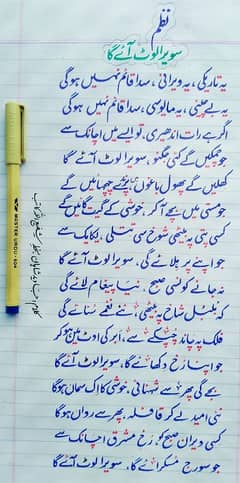 نظم
سویرا لوٹ آئے گا
یہ تاریکی، یہ ویرانی، سدا قائم نہیں ہوگی
یہ بے چینی، یہ مایوسی، سدا قائم نہیں ہوگی
اگر ہے رات اندھیری، تو ایسے میں اچانک سے
جو چمکیں گے کئی جگنو، سویرا لوٹ آئے گا
کھلیں گے پھول باغوں میں، پرندے چہچہائیں گے
جو مستی میں بچے آکر، خوشی کے گیت گائیں گے
کسی پتی پہ بیٹھی شوخ سی تتلی، یکایک سے
جو اپنے پر ہلائے گی، سویرا لوٹ آئے گا
نہ جانے کونسی صبح، نیا پیغام لائے گی
کہ بلبل شاخ پہ بیٹھی، نئے نغمے سنائے گی
فلک پہ چاند چپکے سے، ابر کی اوٹ میں ہو کر
جو اپنا رخ دکھائے گا، سویرا لوٹ آئے گا
بجے گی پھر سے شہنائی، خوشی کا اک سماں ہوگا
نئی امید لے کر قافلہ، پھر سے رواں ہوگا
کسی ویران صبح کو، رخ مشرق اچانک سے
جو سورج مسکرائے گا، سویرا لوٹ آئے گا
MISTER URDU-604